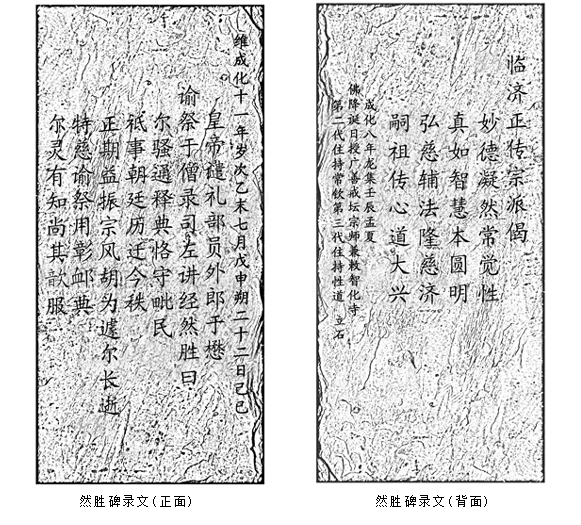 维成化十一年岁次乙未七月戊申朔二十二日己己
皇帝谴礼部员外郎于懋
谕祭于僧录司左讲经然胜曰
尔骚通释典恪守毗民
祇事朝廷历迁今秩
正期益振宗风胡为遽尔长逝
特慈谕祭用彰卹典
尔灵有知尚其歆服
然胜碑录文(正面)
临济正传宗派偈
妙德凝然常觉性
真如智慧本圆明
弘慈辅法隆慈济
嗣祖传心道大兴
成化八年龙集壬辰孟夏
佛降诞日授广善戒坛宗师兼敕智化寺
第二代住持常钦第三代住持性道 立石
然胜碑录文(背面)